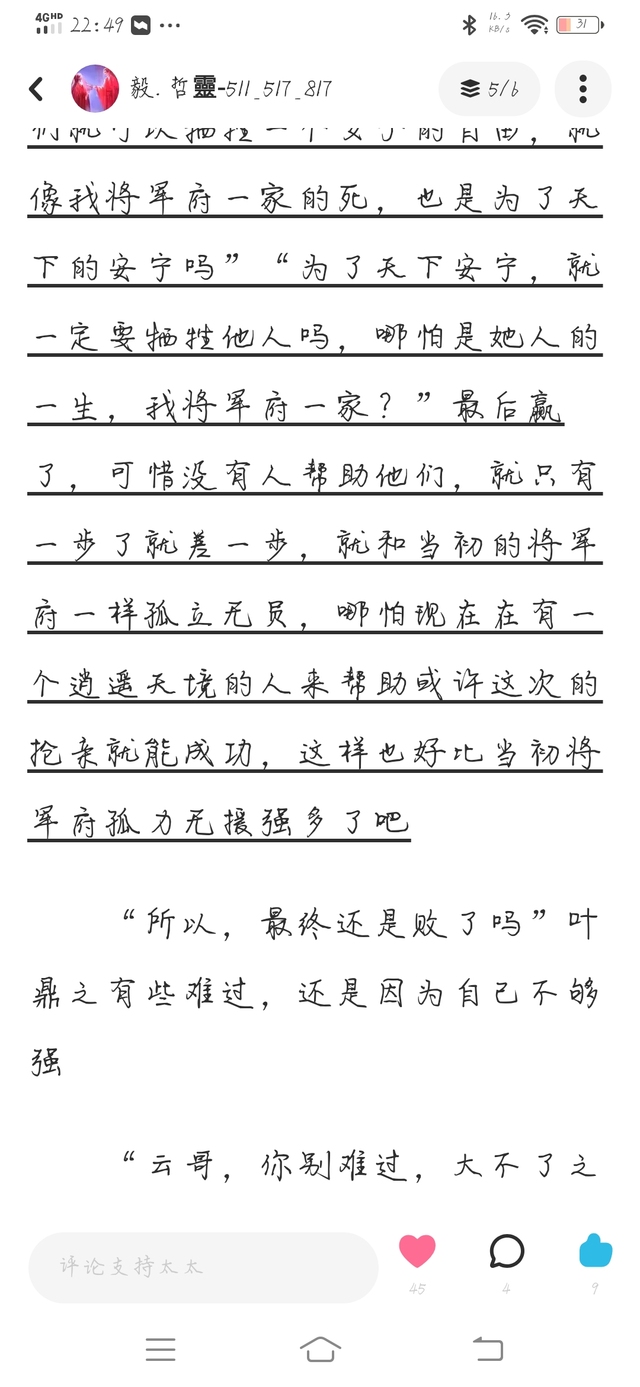 4G HD 22:49 ... 16.5 KB/s 31
毅.哲靈-511_517_817 5/6
像我将军府一家的死，也是为了天
下的安宁吗”“为了天下安宁，就
一定要牺牲他人吗，哪怕是她人的
一生，我将军府一家？”最后赢
了，可惜没有人帮助他们，就只有
一步了就差一步，就和当初的将军
府一样孤立无员，哪怕现在在有一
个逍遥天境的人来帮助或许这次的
抢亲就能成功，这样也好比当初将
军府孤力无援强多了吧
“所以，最终还是败了吗”叶
鼎之有些难过，还是因为自己不够
强
“云哥，你别难过，大不了之
评论支持太太
45 4 9